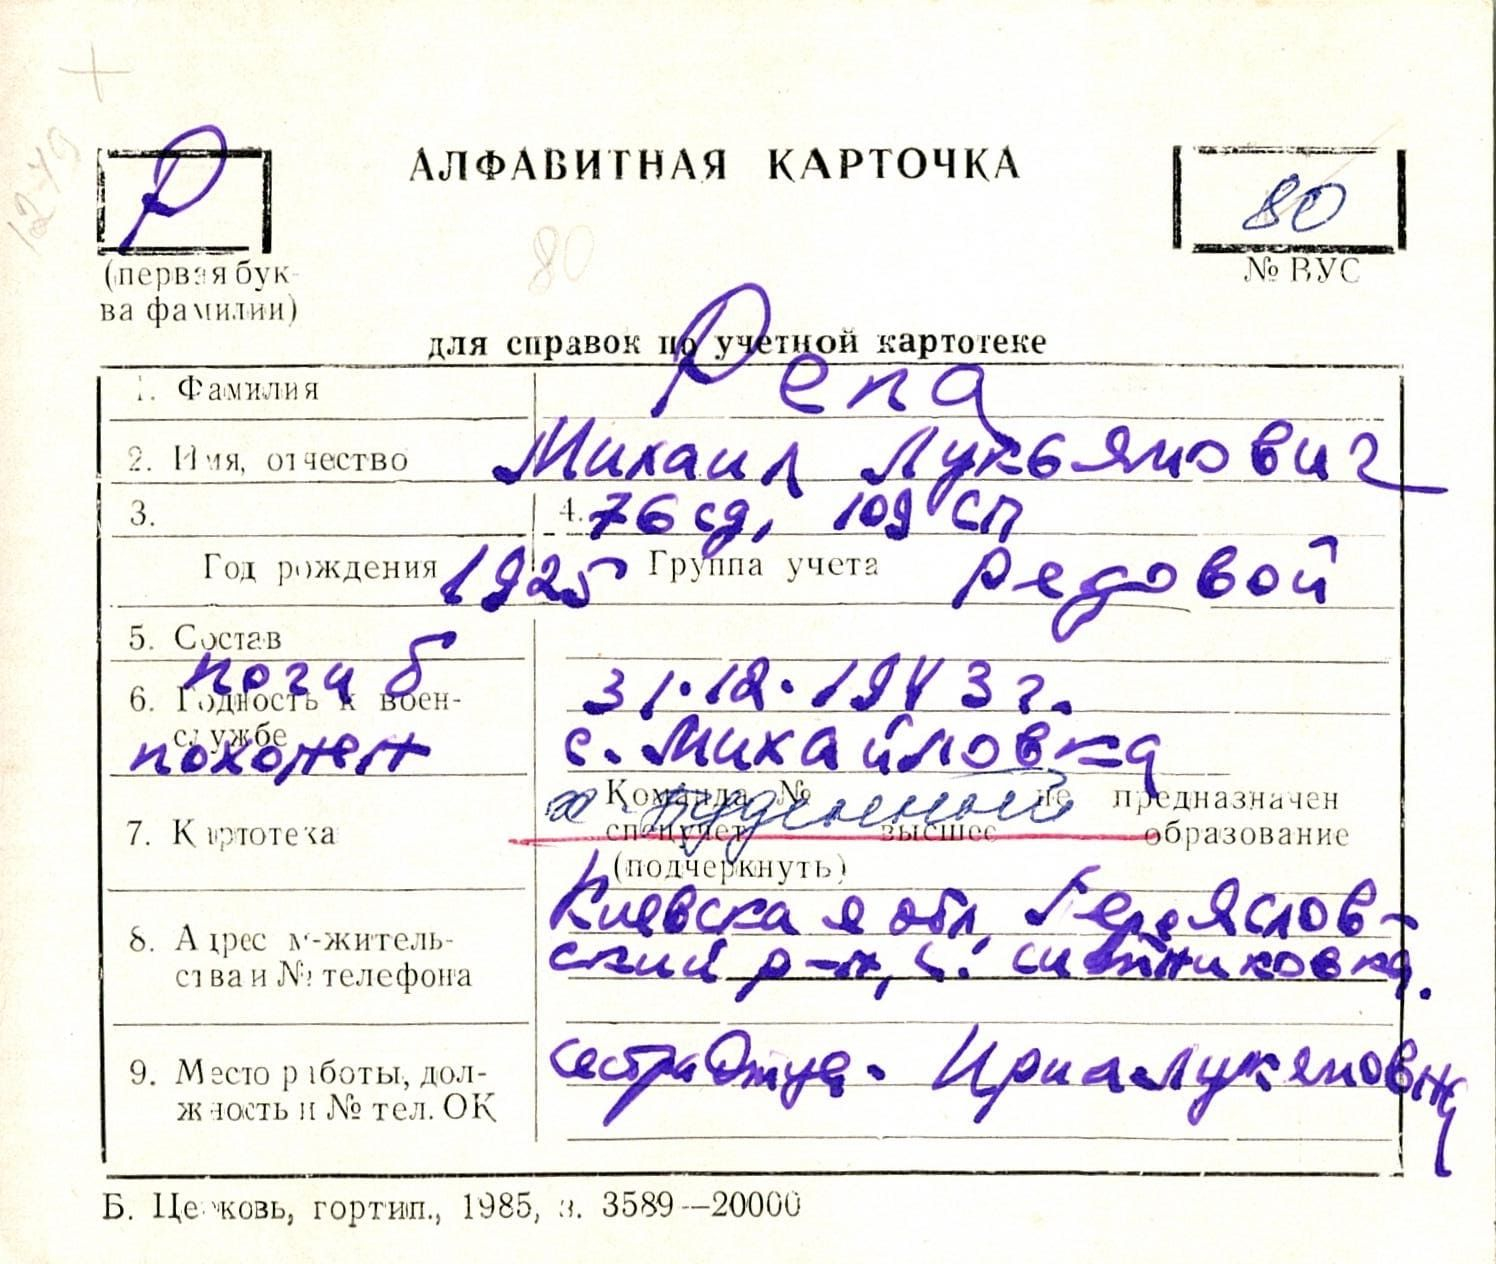 12-49
Р
АЛФАВИТНАЯ КАРТОЧКА
80
(первая бук-
ва фамилии)
80
№ ВУС
для справок по учетной картотеке
1. Фамилия Репа
2. Имя, отчество Михаил Лукьянович
3. 4. 76 сд, 109 сп
Год рождения 1925 Группа учета Редовой
5. Состав
погиб 31.12.1943 г.
6. Годность к воен-
службе
похонен с. Михайловка
Команда № не предназначен
х. Буденный
7. Картотека спецучет высшее образование
(подчеркнуть)
Киевская обл, Переяслов-
8. Адрес м-житель-
ства и № телефона
ский р-н, с. ситниковка.
9. Место работы, дол-
жность и № тел. ОК
сестра Ириалукяновна
Б. Церковь, гортип., 1985, з. 3589—20000